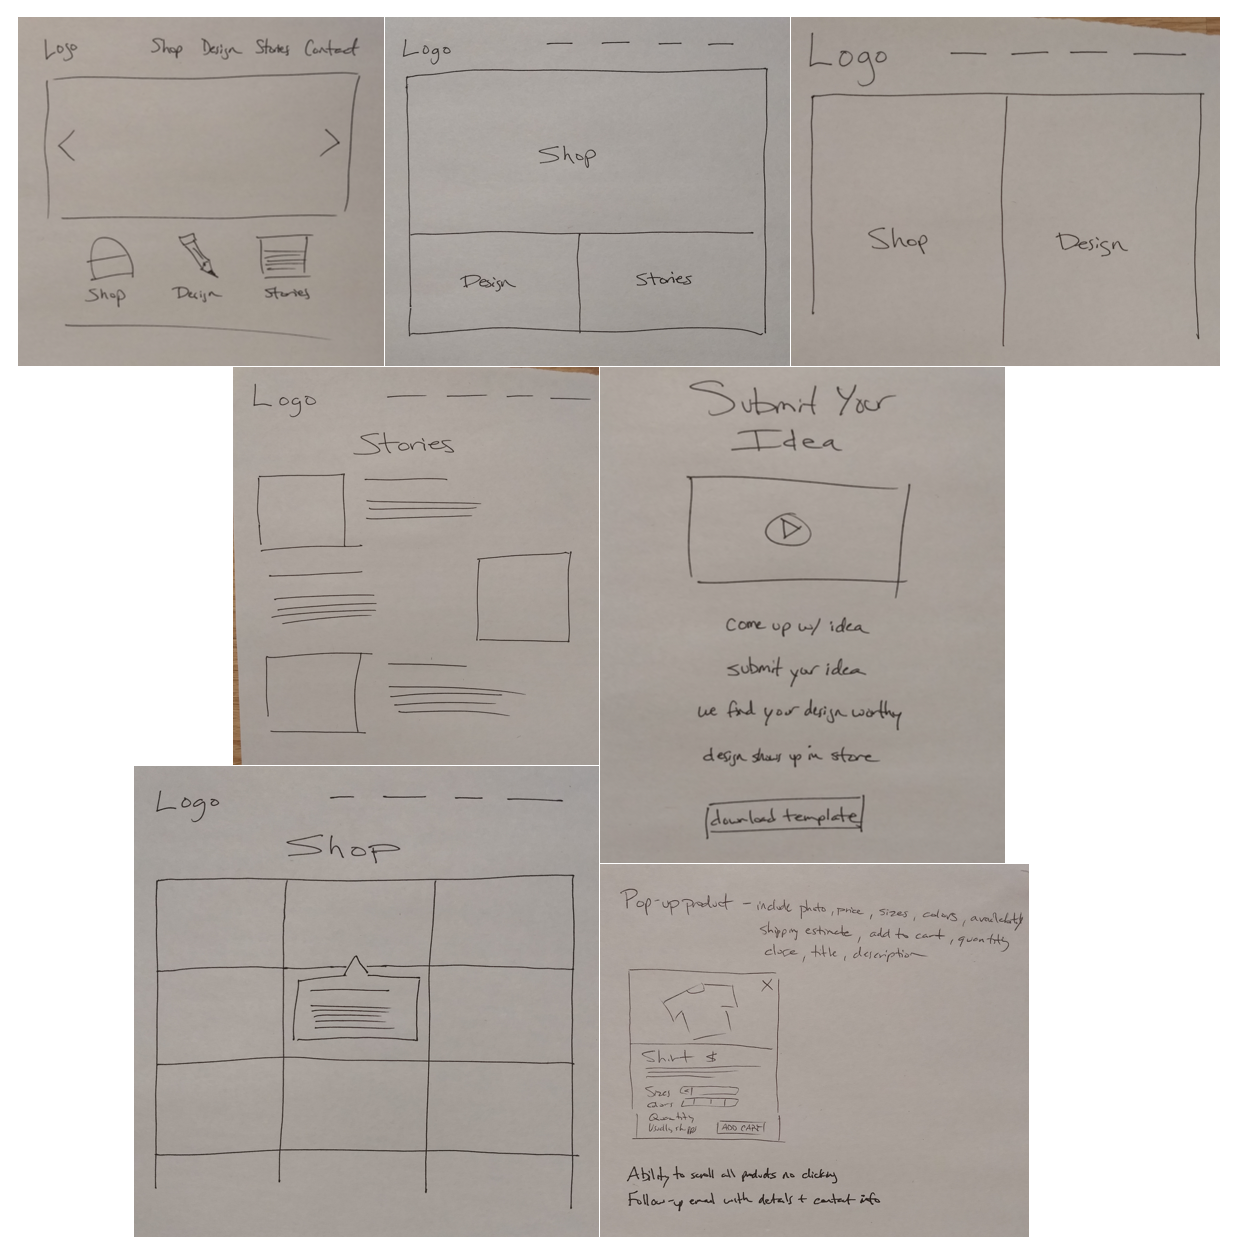 Logo
Shop Design Stories Contact
Shop
Design
Stories
Logo
Shop
Design
Stories
Logo
Shop
Design
Logo
Stories
Submit Your
Idea
come up w/ idea
submit your idea
we find your design worthy
design shows up in store
download template
Logo
Shop
Pop-up product - include photo, price, sizes, colors, availability
shipping estimate, add to cart, quantity
close, title, description
X
Shirt $
Sizes
Colors
Quantity
Usually ships
ADD CART
Ability to scroll all products no clicking
Follow-up email with details + contact info